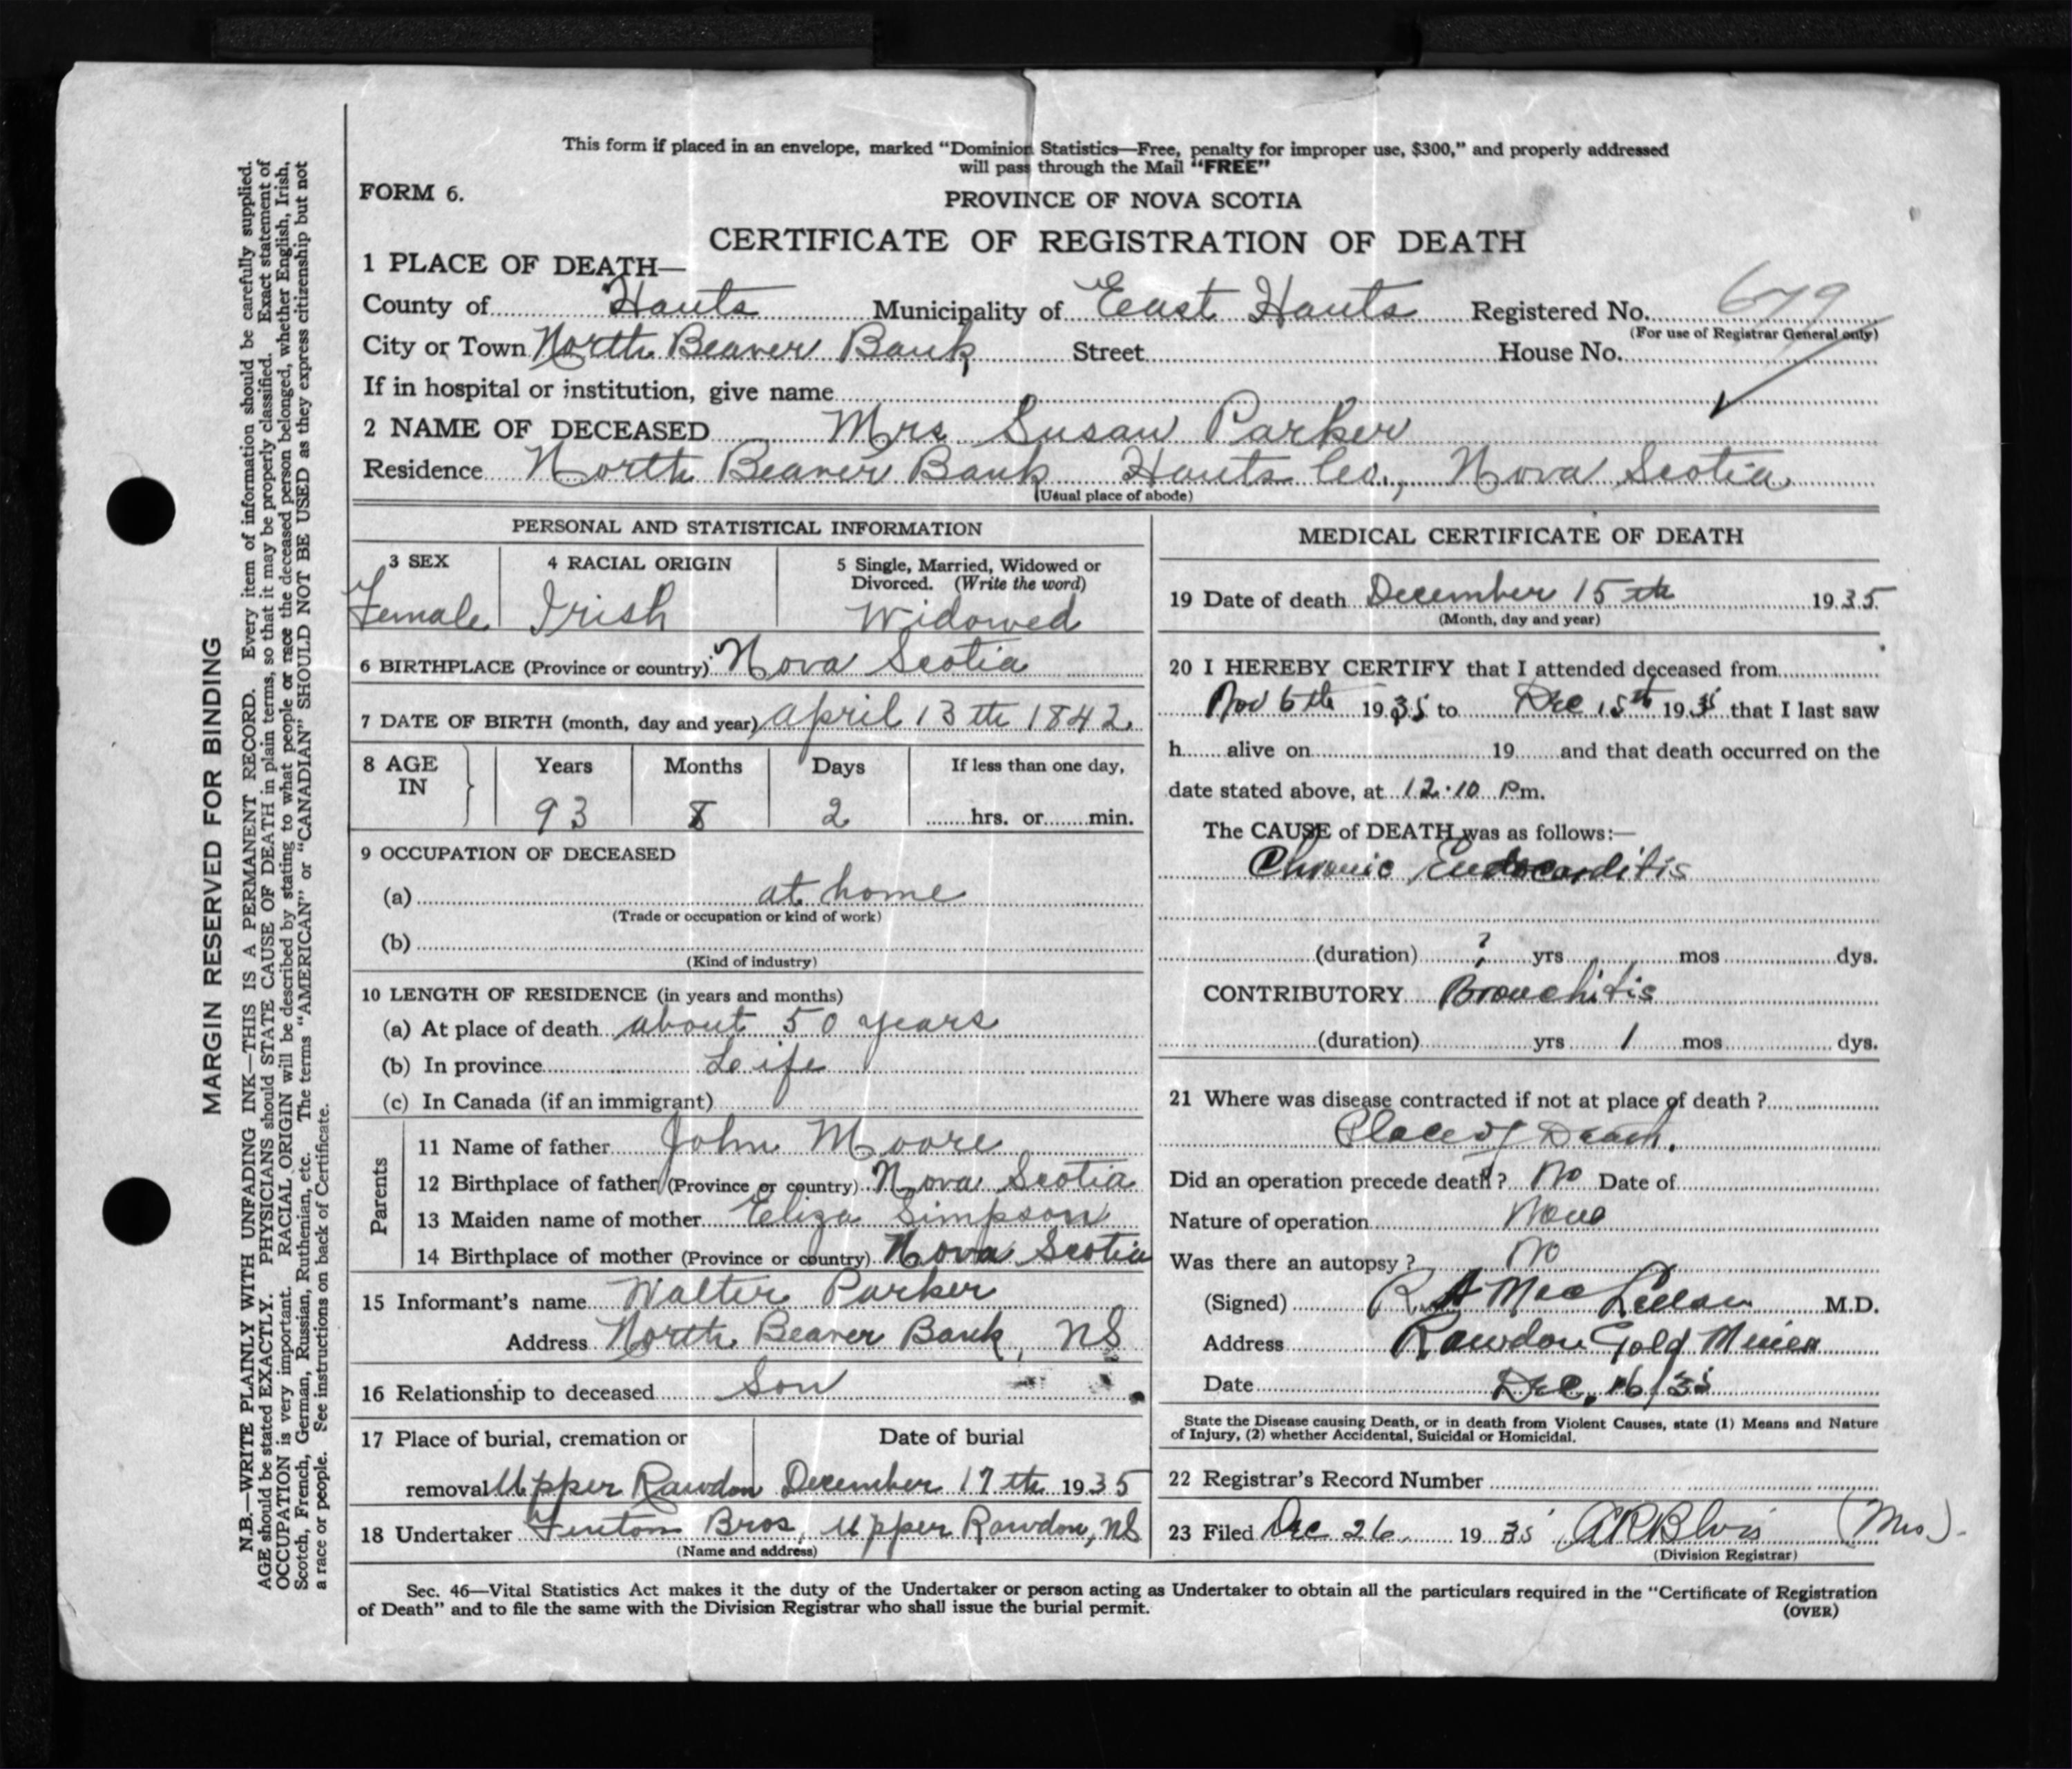 This form if placed in an envelope, marked “Dominion Statistics—Free, penalty for improper use, $300,” and properly addressed
will pass through the Mail “FREE”
FORM 6.
PROVINCE OF NOVA SCOTIA
CERTIFICATE OF REGISTRATION OF DEATH
1 PLACE OF DEATH—
County of Hants Municipality of East Hants Registered No. 679
(For use of Registrar General only)
City or Town North Beaver Bank Street House No.
If in hospital or institution, give name
2 NAME OF DECEASED Mrs Susan Parker
Residence North Beaver Bank Hants Co., Nova Scotia
(Usual place of abode)
PERSONAL AND STATISTICAL INFORMATION
3 SEX 4 RACIAL ORIGIN 5 Single, Married, Widowed or
Divorced. (Write the word)
Female Irish Widowed
6 BIRTHPLACE (Province or country) Nova Scotia
7 DATE OF BIRTH (month, day and year) April 13th 1842
8 AGE Years Months Days If less than one day,
IN
93 8 2 hrs. or min.
9 OCCUPATION OF DECEASED
(a) at home
(Trade or occupation or kind of work)
(b)
(Kind of industry)
10 LENGTH OF RESIDENCE (in years and months)
(a) At place of death about 50 years
(b) In province Life
(c) In Canada (if an immigrant)
Parents
11 Name of father John Moore
12 Birthplace of father (Province or country) Nova Scotia
13 Maiden name of mother Eliza Simpson
14 Birthplace of mother (Province or country) Nova Scotia
15 Informant’s name Walter Parker
Address North Beaver Bank, NS
16 Relationship to deceased Son
17 Place of burial, cremation or Date of burial
removal Upper Rawdon December 17th 1935
18 Undertaker Fenton Bros, Upper Rawdon, NS
(Name and address)
MEDICAL CERTIFICATE OF DEATH
19 Date of death December 15th 1935
(Month, day and year)
20 I HEREBY CERTIFY that I attended deceased from
Nov 6th 1935 to Dec 15th 1935 that I last saw
h alive on 19 and that death occurred on the
date stated above, at 12.10 Pm.
The CAUSE of DEATH was as follows:—
Chronic Endocarditis
(duration) ? yrs mos dys.
CONTRIBUTORY Bronchitis
(duration) yrs 1 mos dys.
21 Where was disease contracted if not at place of death ?
Place of Death.
Did an operation precede death ? No Date of
Nature of operation None
Was there an autopsy ? No
(Signed) R A MacLellan M.D.
Address Rawdon Gold Mines
Date Dec. 16/35
State the Disease causing Death, or in death from Violent Causes, state (1) Means and Nature
of Injury, (2) whether Accidental, Suicidal or Homicidal.
22 Registrar’s Record Number
23 Filed Dec 26 1935 (Mrs)
(Division Registrar)
Sec. 46—Vital Statistics Act makes it the duty of the Undertaker or person acting as Undertaker to obtain all the particulars required in the “Certificate of Registration
of Death” and to file the same with the Division Registrar who shall issue the burial permit.
(OVER)
MARGIN RESERVED FOR BINDING
N.B.—WRITE PLAINLY WITH UNFADING INK—THIS IS A PERMANENT RECORD. Every item of information should be carefully supplied.
AGE should be stated EXACTLY. PHYSICIANS should STATE CAUSE OF DEATH in plain terms, so that it may be properly classified. Exact statement of
OCCUPATION is very important. RACIAL ORIGIN will be described by stating to what people or race the deceased person belonged, whether English, Irish,
Scotch, French, German, Russian, Ruthenian, etc. The terms “AMERICAN” or “CANADIAN” SHOULD NOT BE USED as they express citizenship but not
a race or people. See instructions on back of Certificate.